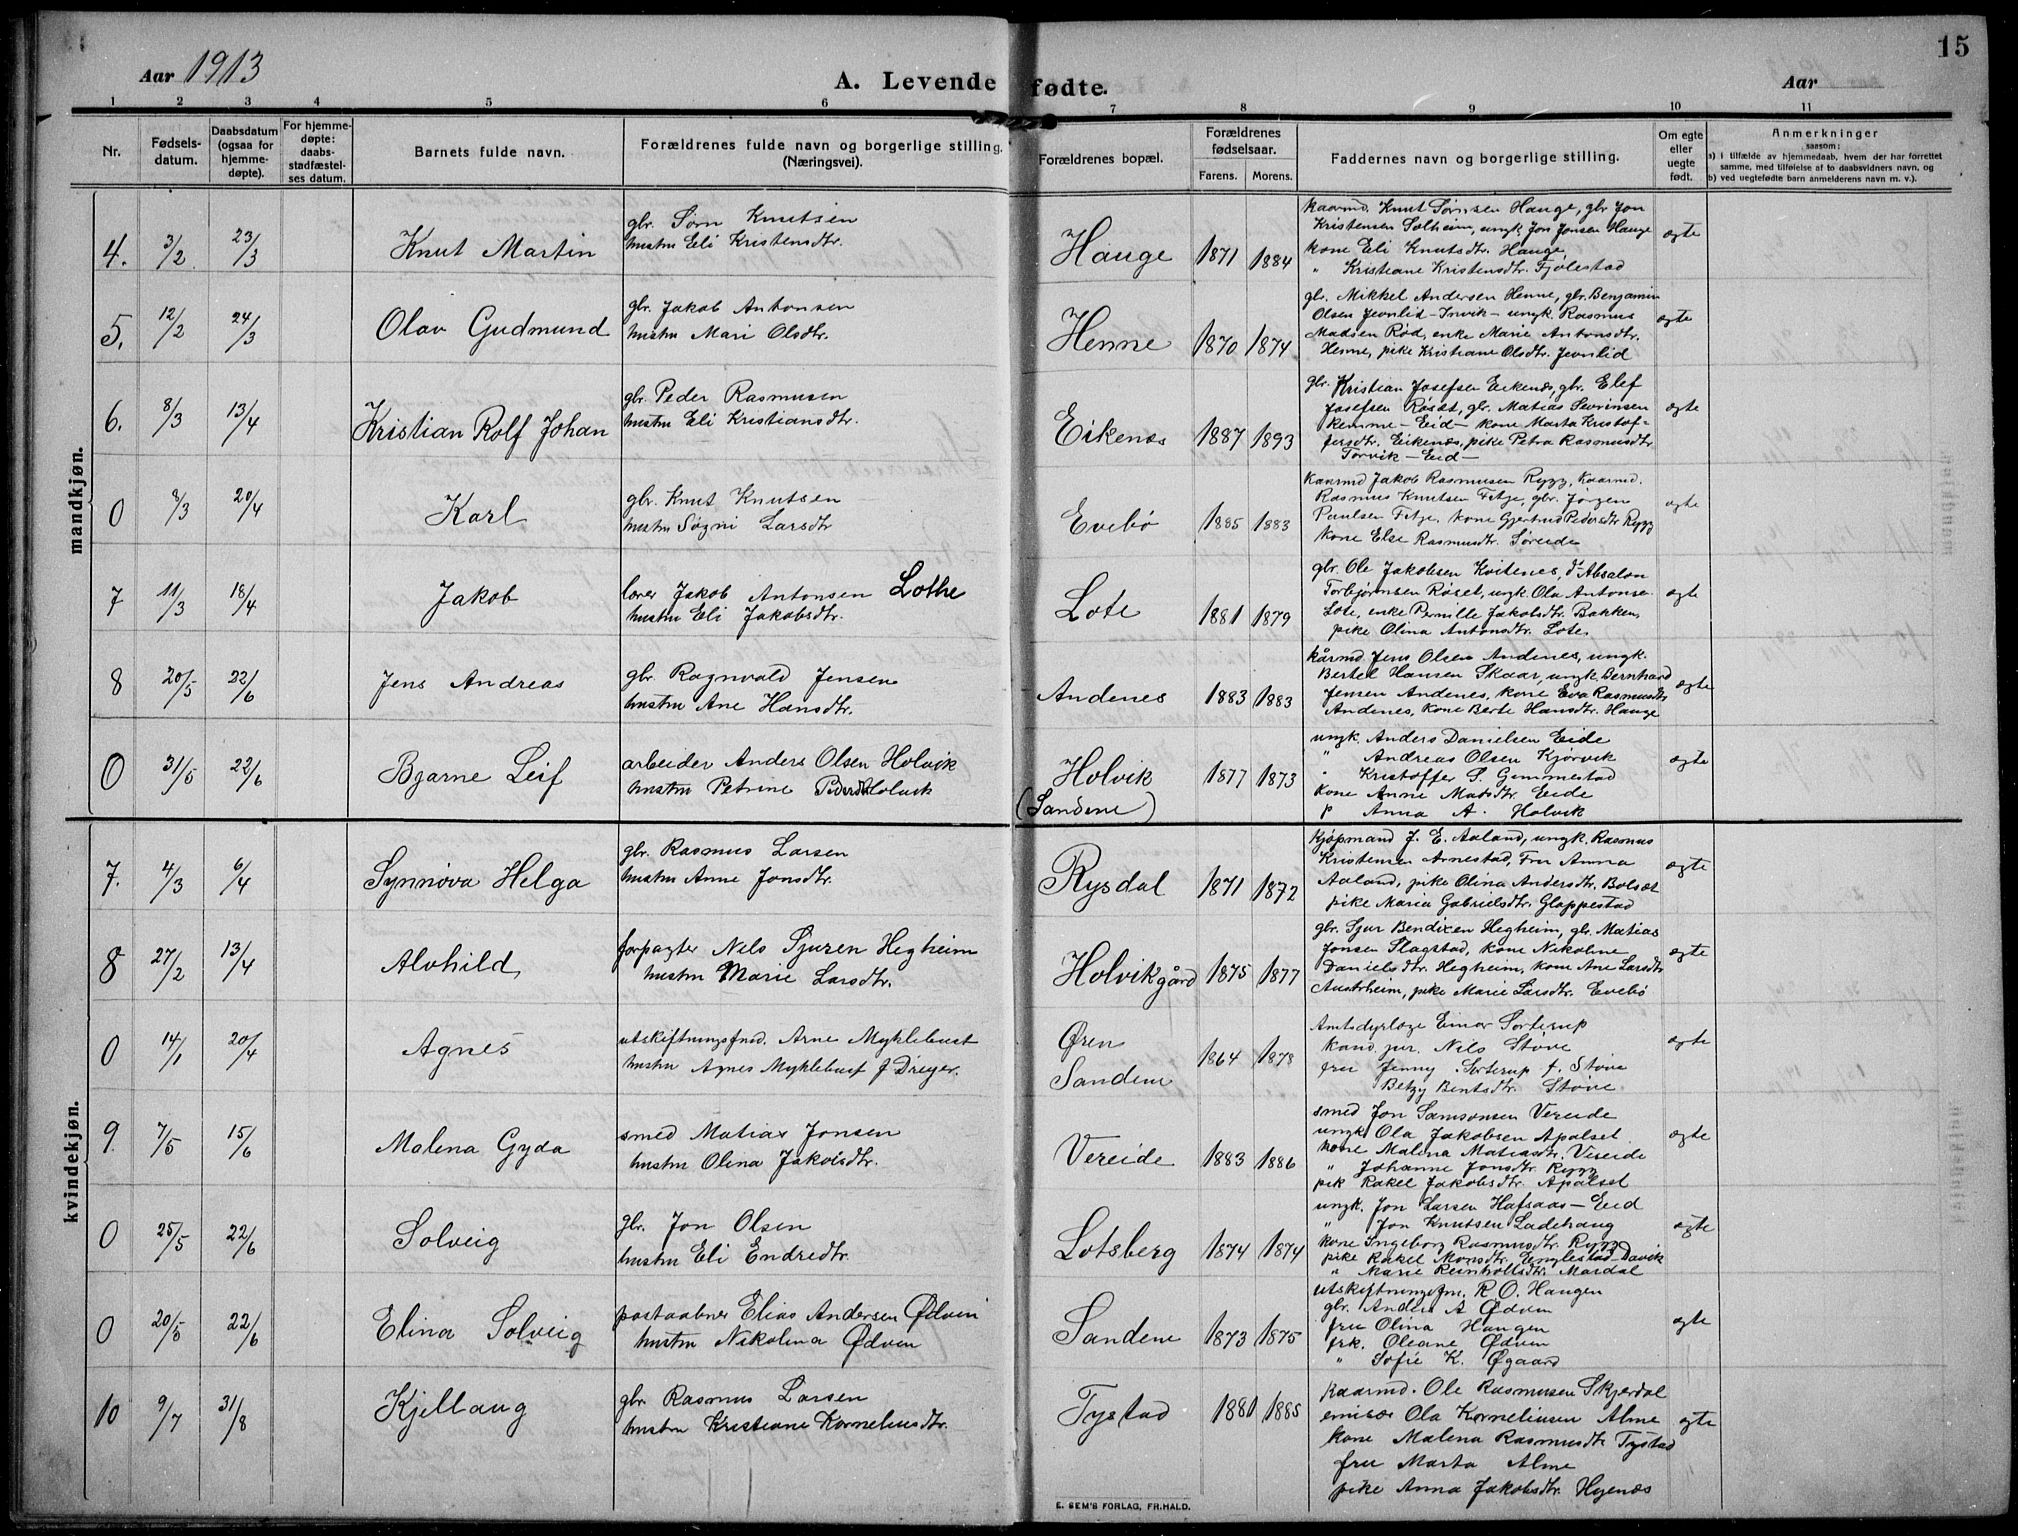 Aar 1913
A. Levende fødte.
Aar
15
1 2 3 4 5 6 7 8 9 10 11
Nr.
Fødsels-
datum.
Daabsdatum
(ogsaa for
hjemme-
døpte).
For hjemme-
døpte:
daabs-
stadfæstel-
ses datum.
Barnets fulde navn.
Forældrenes fulde navn og borgerlige stilling.
(Næringsvei).
Forældrenes bopæl.
Forældrenes
fødselsaar.
Farens. Morens.
Faddernes navn og borgerlige stilling.
Om egte
eller
uegte
født.
Anmerkninger
saasom:
a) i tilfælde av hjemmedaab, hvem der har forrettet
samme, med tilføielse af to daabsvidners navn, og
b) ved uegtefødte barn anmelderens navn m. v.).
mandkjøn.
4. 3/2 23/3 Knut Martin
gbr. Sørn Knutsen
hustru Eli Kristensdtr.
Hauge 1871 1884
kaarmd. Knut Sørnsen Hauge, gbr Jon
Kristensen Solheim, ungk. Jon Jonsen Hauge
kone Eli Knutsdtr. Hauge,
" Kristiane Kristensdtr. Fjølestad
egte
5. 12/2 24/3 Olav Gudmund
gbr. Jakob Antonsen
hustru Mari Olsdtr.
Henne 1870 1874
gbr. Mikkel Andersen Henne, gbr. Benjamin
Olsen Jevnlid - Invik - ungk. Rasmus
Madsen Rød, enke Marie Antonsdtr.
Henne, pike Kristiane Olsdtr. Jevnlid
egte
6. 8/3 13/4 Kristian Rolf Johan
gbr. Peder Rasmusen
hustru Eli Kristiansdtr.
Eikenes 1887 1893
gbr. Kristian Josefsen Eikenes, gbr. Elef
Josefsen Røset, gbr. Matias Sevrinsen
Kemme - Eid - kone Marta Kristof-
fersdtr. Eikenes, pike Petra Rasmusdtr
Torvik - Eid -
egte
0 8/3 20/4 Karl
gbr. Knut Knutsen
hustru Søgni Larsdtr
Evebø 1885 1883
Kaarmd Jakob Rasmusen Rygg, Kaarmd.
Rasmus Knutsen Fitje, gbr. Jørgen
Paulsen Fitje, kone Gjertrud Pedersdtr Rygg
kone Else Rasmusdtr. Søreide
egte
7 11/3 18/4 Jakob
lærer Jakob Antonsen Lothe
hustru Eli Jakobsdtr.
Lote 1881 1879
gbr. Ole Jakobsen Kvitenes, do Absalon
Torbjørnsen Røset, ungk. Ola Antonse
Lote, enke Pernille Jakobsdtr. Bakken,
pike Olina Antonsdtr. Lote,
egte
8 20/5 22/6 Jens Andreas
gbr. Ragnvald Jensen
hustru Ane Hansdtr.
Andenes 1883 1883
kårmd. Jens Olsen Andenes, ungk.
Bertel Hansen Skaar, ungk. Bernhard
Jensen Andenes, kone Eva Rasmusdtr,
Andenes, kone Berte Hansdtr. Hauge
egte
0 31/5 22/6 Bjarne Leif
arbeider Anders Olsen Holvik
hustru Petrine Pedersdtr Holvik
Holvik
(Sandene)
1877 1873
ungk. Anders Danielsen Eide
" Andreas Olsen Kjørvik
" Kristoffer S. Gimmestad
kone Anne Matsdtr. Eide
p Anna A. Holvik
egte
kvindekjøn.
7. 4/3 6/4 Synnøva Helga
gbr. Rasmus Larsen
hustru Anne Jonsdtr.
Rysdal 1871 1872
Kjøpmand J. E. Aaland, ungk. Rasmus
Kristensen Arnestad, Fru Anna
Aaland, pike Olina Andersdtr. Bolset
pike Maria Gabrielsdtr. Gloppestad
egte
8 27/2 13/4 Alvhild
forpagter Nils Sjuren Hegheim
hustru Marie Larsdtr.
Holvikgård 1875 1877
gbr. Sjur Bendixen Hegheim, gbr. Matias
Jonsen Slagstad, kone Nikoline
Danielsdtr. Hegheim, kone Ane Larsdtr
Austrheim, pike Marie Larsdtr. Evebø
egte
0 14/1 20/4 Agnes
utskiftningsfmd. Arne Myklebust
hustru Agnes Myklebust f Dreyer.
Øren
Sandene
1864 1878
Amtsdyrlæge Einar Sørterup
kand. jur. Nils Støve
fru Jenny Sørterup f. Støve
Betzy Bentsdtr. Støve
egte
9. 7/5 15/6 Malena Gyda
smed Matias Jonsen
hustru Olina Jakobsdtr.
Vereide 1883 1886
smed Jon Samsonsen Vereide
ungk Ola Jakobsen Apalset.
kone Malena Matiasdtr. Vereide
" Johanne Jonsdtr. Rygg
pik Rakel Jakobsdtr. Apalset
egte
0 25/5 22/6 Solveig
gbr. Jon Olsen
hustru Eli Endredtr.
Lotsberg 1874 1874
ungk. Jon Larsen Hafsaas - Eid
" Jon Knutsen Ladehaug
kone Ingeborg Rasmusdtr. Rygg
pike Rakel Monsdtr. Englestad - Davik
" Marie Reinholtsdtr. Mardal
egte
0 20/5 22/6 Elina Solveig
postaabner Elias Andersen Ødven
hustru Nikolina Ødven
Sandene 1873 1875
utskiftningsfm. R. O. Haugen
gbr. Anders A Ødven
fru Olina Haugen
frk. Oleane Ødven
" Sofie K. Øgaard
egte
10 9/7 31/8 Kjellaug
gbr Rasmus Larsen
hustru Kristiane Korneliusdtr.
Tystad 1881 1885
kaarmd. Ole Rasmusen Skjerdal
emisær Ola Korneliusen Alme
kone Malena Rasmusdtr Tystad
fru Marta Alme
pike Anna Jakobsdtr. Hyenes
egte
E. SEM'S FORLAG, FR.HALD.